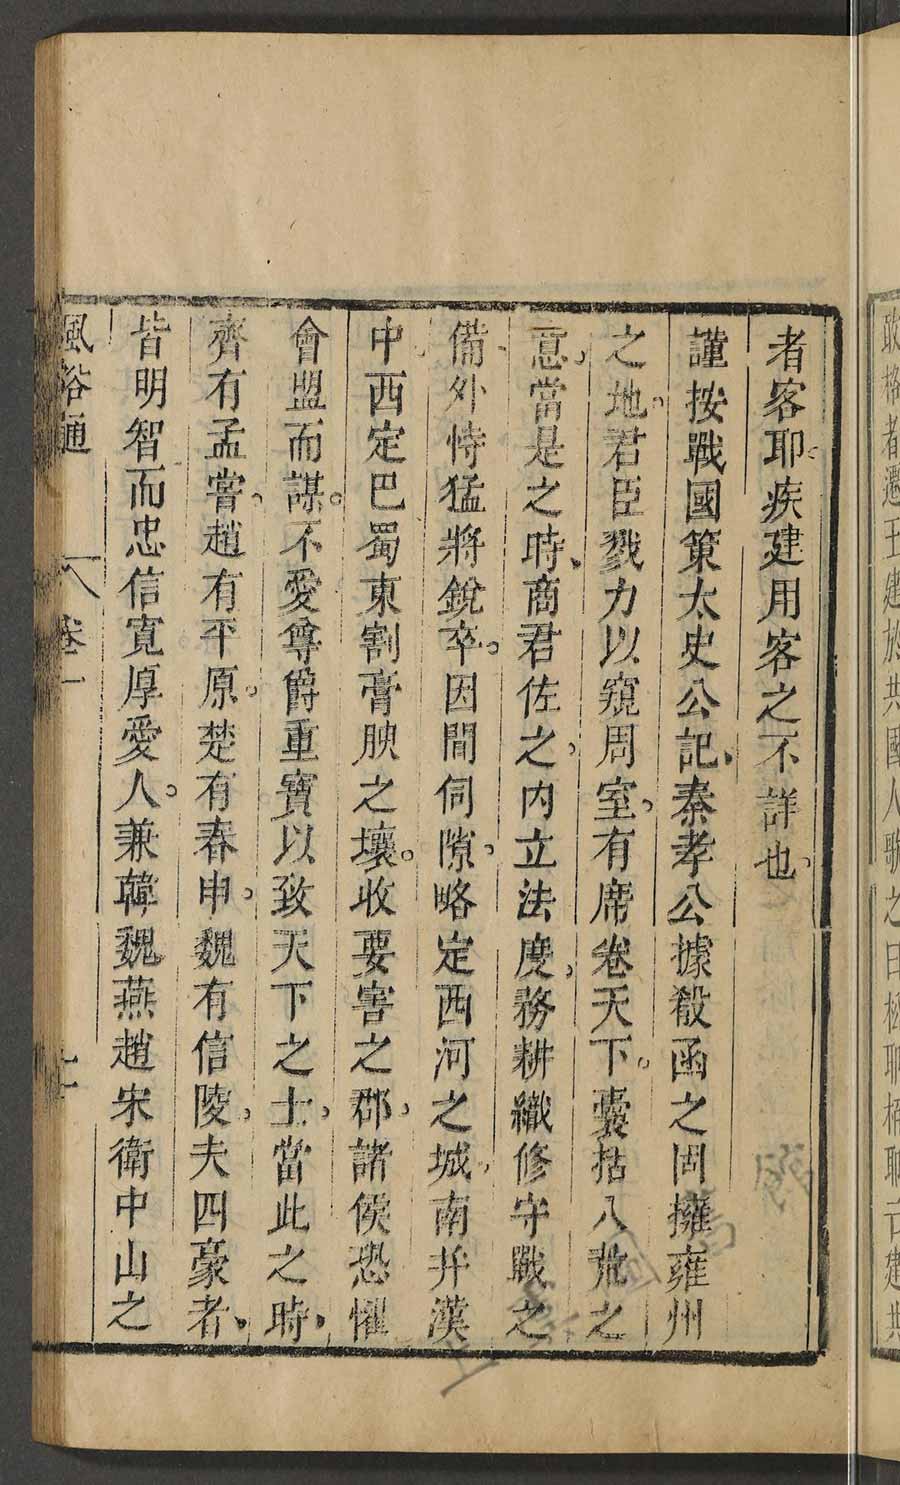 者客耶疾建用客之不詳也
謹按戰國策太史公記秦孝公據殽函之固擁雍州
之地君臣戮力以窺周室有席卷天下囊括八荒之
意當是之時商君佐之內立法度務耕織修守戰之
備外恃猛將銳卒因間伺隙略定西河之城南幷漢
中西定巴蜀東割膏腴之壤收要害之郡諸侯恐懼
會盟而謀不愛尊爵重寶以致天下之士當此之時
齊有孟嘗趙有平原楚有春申魏有信陵夫四豪者
皆明智而忠信寬厚愛人兼韓魏燕趙宋衛中山之
風俗通 卷一